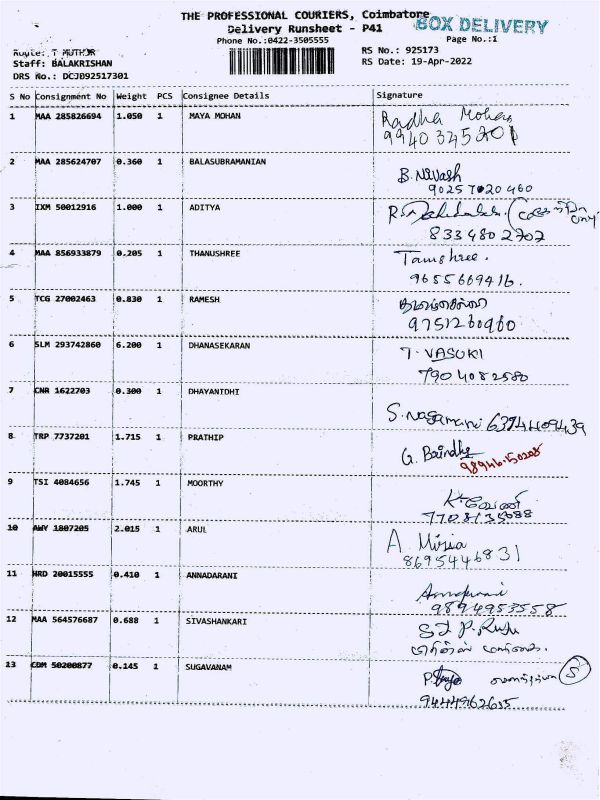 THE PROFESSIONAL COURIERS, Coimbatore
BOX DELIVERY
Delivery Runsheet - P41
Page No.:1
Phone No.:0422-3505555
RS No.: 925173
Staff: BALAKRISHAN
RS Date: 19-Apr-2022
DRS No.: DCJ092517301
S No Consignment No Weight PCS Consignee Details Signature
1 MAA 285826694 1.050 1 MAYA MOHAN Radha Mohan
9940345201
2 MAA 285624707 0.360 1 BALASUBRAMANIAN B. Nivash
9025702046 0
3 IXM 50012916 1.000 1 ADITYA
8334802702
4 MAA 856933879 0.205 1 THANUSHREE Tanushree.
9655609416.
5 TCG 27002463 0.830 1 RAMESH
9751260960
6 SLM 293742860 6.200 1 DHANASEKARAN T. VASUKI
7904082580
7 CNR 1622703 0.300 1 DHAYANIDHI
S. Nagamani 6374409439
8 TRP 7737201 1.715 1 PRATHIP G.
98946.150205
9 TSI 4084656 1.745 1 MOORTHY
7708135088
10 AWY 1807205 2.015 1 ARUL A
8695446831
11 HRD 20015555 0.410 1 ANNADARANI
9894953558
12 MAA 564576687 0.688 1 SIVASHANKARI
13 COM 50200877 0.145 1 SUGAVANAM
S
9444962655